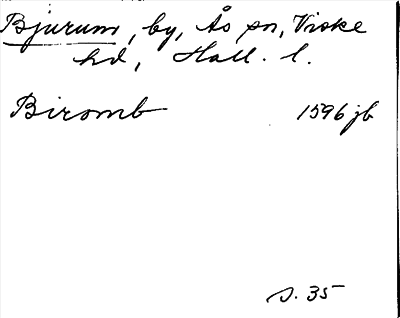 Bjurum, by, Ås sn, Viske
hd, Hall. l.
Biromb 1596 jb
s. 35